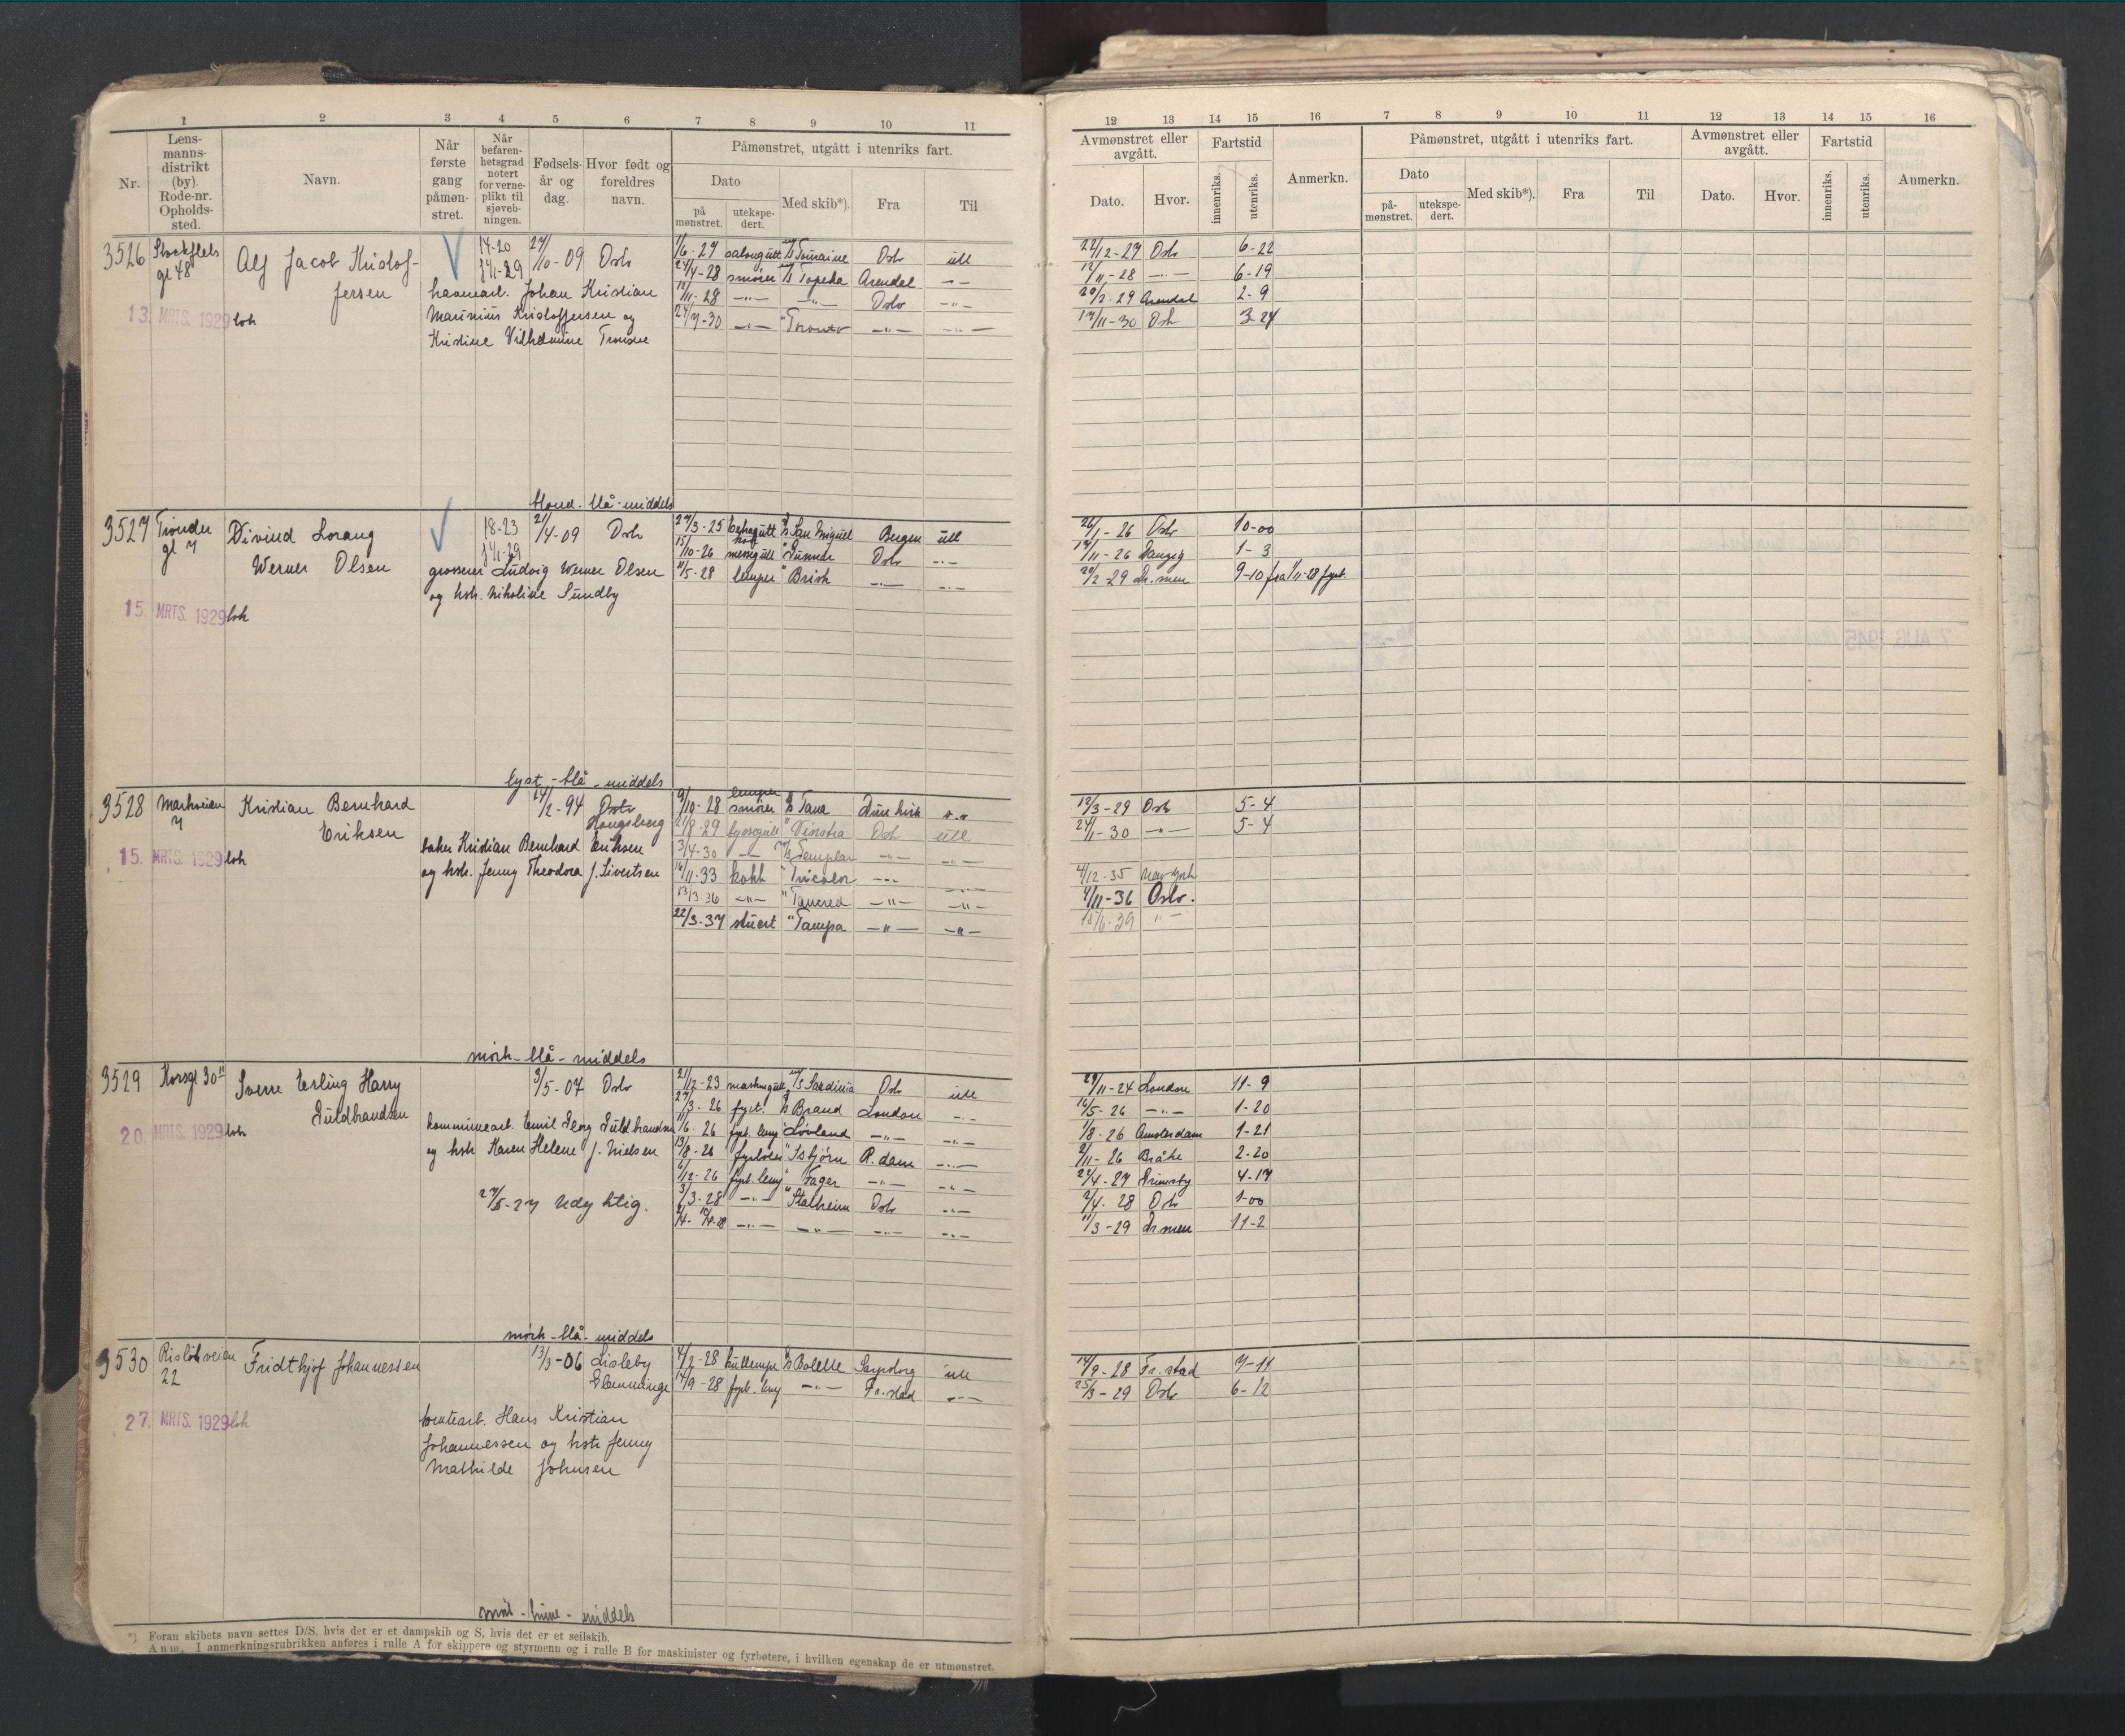 1 2 3 4 5 6 7 8 9 10 11
Nr. Lensmannsdistrikt (by). Rode-nr. Opholdssted. Navn. Når første gang påmønstret. Når befarenhetsgrad notert for verneplikt til sjøvebningen. Fødselsår og dag. Hvor født og foreldres navn. Påmønstret, utgått i utenriks fart.
Dato Med skib*). Fra Til
på mønstret. utekspedert.
3526 gt 48 Alf Jacob Kristoffersen 14-20 27/10-09 Oslo
havnearb. Johan Kristian
Marinius Kristoffersen og
Kristine Vilhelmine
13. MRTS. 1929
1/6-27 salongutt M/S Touraine Oslo utl
24/4-28 smører M/S Topeka Arendal -"-
12/11-28 -"- -"- Oslo -"-
24/7-30 -"- " Toronto -"- -"-
blond - blå - middels
3527 Trondergt 7 Øivind Lorang Werner Olsen 18-23 21/4-09 Oslo
grosserer Ludvig Werner Olsen
og hstr. Nikoline Sundby
15. MRTS. 1929
27/3-25 San Miguel Bergen utl
15/10-26 messegutt " Gunnar Oslo -"-
11/5-28 lemper " Brisk -"- -"-
lyst - blå - middels
3528 Markveien 7 Kristian Bernhard Eriksen 14/2-94 Oslo
Kongsberg
baker Kristian Bernhard Eriksen
og hstr. Jenny Theodora f. Sivertsen
15. MRTS. 1929
lemper
9/10-28 smører D/S Tana Dunkirk -"-
21/8-29 byssegutt " Vinstra Oslo utl
3/4-30 -"- M/S Templar -"- -"-
16/11-33 kokk " Tricolor -"- -"-
13/3-36 -"- " Tancred -"- -"-
22/3-37 stuert " Tampa -"- -"-
mørk - blå - middels
3529 Korsgt 30 II Sverre Erling Harry Guldbrandsen 3/5-07 Oslo
kommunearb. Emil Georg Guldbrandsen
og hstr. Karen Helene f. Nielsen
27/5-27 Udyktig.
20. MRTS. 1929
21/12-23 maskingutt M/S Sardinia Oslo utl
27/3-26 fyrb. D/S Brand London -"-
11/6-26 fyrb. lemp " Lovland -"- -"-
13/8-26 fyrbøter " Isbjørn R.dam -"-
6/12-26 fyrb. lemp " Fager -"- -"-
3/3-28 -"- " Stalheim Oslo -"-
-"- -"- -"- -"-
mørk - blå - middels
3530 22 Fridthjof Johannessen 13/3-06 Lisleby
Glemminge
Hans Kristian
Johannessen og hstr Jenny
Mathilde Johnsen
27. MRTS. 1929
4/2-28 kullemper D/S Bolette Sarpsborg utl
14/9-28 fyrb. lemp -"- Fr.stad -"-
middels
*) Foran skibets navn settes D/S, hvis det er et dampskib og S, hvis det er et seilskib.
Anm. I anmerkningsrubrikken anføres i rulle A for skippere og styrmenn og i rulle B for maskinister og fyrbøtere, i hvilken egenskap de er utmønstret.
12 13 14 15 16 7 8 9 10 11 12 13 14 15 16
Avmønstret eller avgått. Fartstid Anmerkn. Påmønstret, utgått i utenriks fart. Avmønstret eller avgått. Fartstid Anmerkn.
Dato. Hvor. innenriks. utenriks. Dato Med skib*). Fra Til Dato. Hvor. innenriks. utenriks.
påmønstret. utekspedert.
22/12-27 Oslo 6-22
12/11-28 -"- 6-19
20/2-29 Arendal 2-9
17/11-30 Oslo 3-24
26/1-26 Oslo 10-00
17/11-26 Danzig 1-3
20/2-29 Dr.men 9-10 fra 1/11-28 fyrb.
12/3-29 Oslo 5-4
24/1-30 -"- 5-4
4/12-35 New York
4/11-36 Oslo.
15/6-39 "-
29/11-24 London 11-9
16/5-26 -"- 1-20
1/8-26 Amsterdam 1-21
2/11-26 Bråke 2-20
22/4-27 Grimsby 4-17
2/4-28 Oslo 1-00
11/3-29 Dr.men 11-2
14/9-28 Fr.stad 7-11
25/3-29 Oslo 6-12